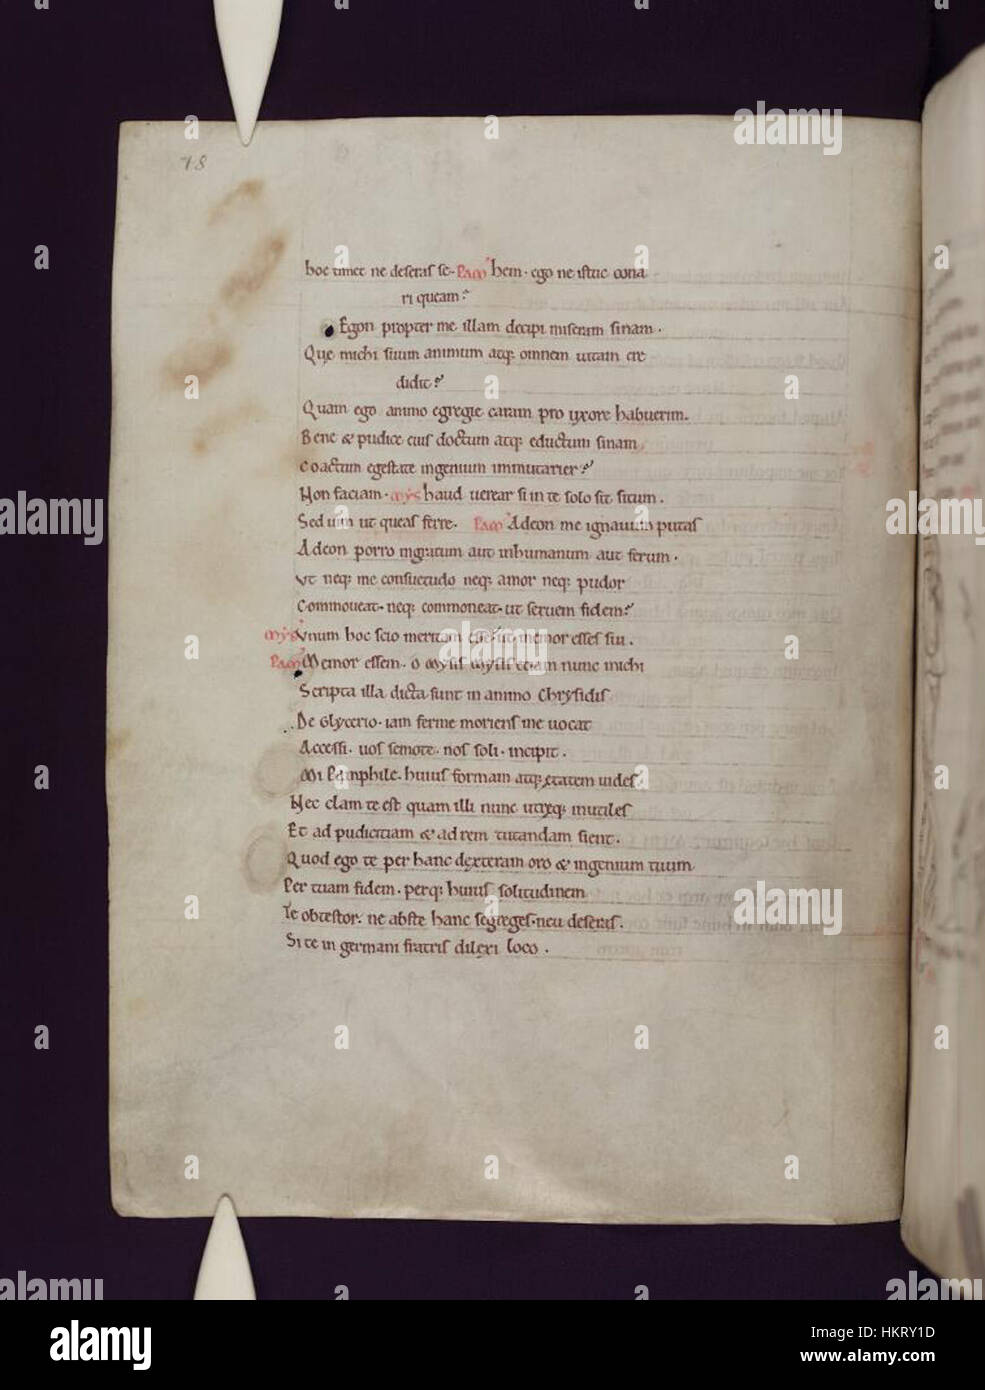 18
hoc timet ne deseras se. PAM hem. ego ne istuc cona
ri queam?
Egon propter me illam decipi miseram sinam.
Que michi suum animum atq; omnem uitam cre
didit?
Quam ego animo egregie caram pro uxore habuerim.
Bene & pudice eius doctum atq; eductum sinam
Coactum egestate ingenium immutarier?
Non faciam. MYS haud uerear si in te solo sit situm.
Sed uim ut queas ferre. PAM Adeon me ignauum putas
Adeon porro ingratum aut inhumanum aut ferum.
Vt neq; me consuetudo neq; amor neq; pudor
Commoueat. neq; commoneat. ut seruem fidem?
MYS Vnum hoc scio meritam esse. ut memor esses sui.
PAM Memor essem. o mysis mysis etiam nunc michi
Scripta illa dicta sunt in animo Chrysidis
De Glycerio. iam ferme moriens me uocat
Accessi. uos semote. nos soli. incipit.
Mi Pamphile. huius formam atq; etatem uides.
Nec clam te est quam illi nunc utreq; inutiles
Et ad pudicitiam & ad rem tutandam sient.
Quod ego te per hanc dexteram oro & ingenium tuum
Per tuam fidem. perq; huius solitudinem
Te obtestor. ne abste hanc segreges. neu deseras.
Si te in germani fratris dilexi loco.
alamy
Image ID: HKRY1D
www.alamy.com